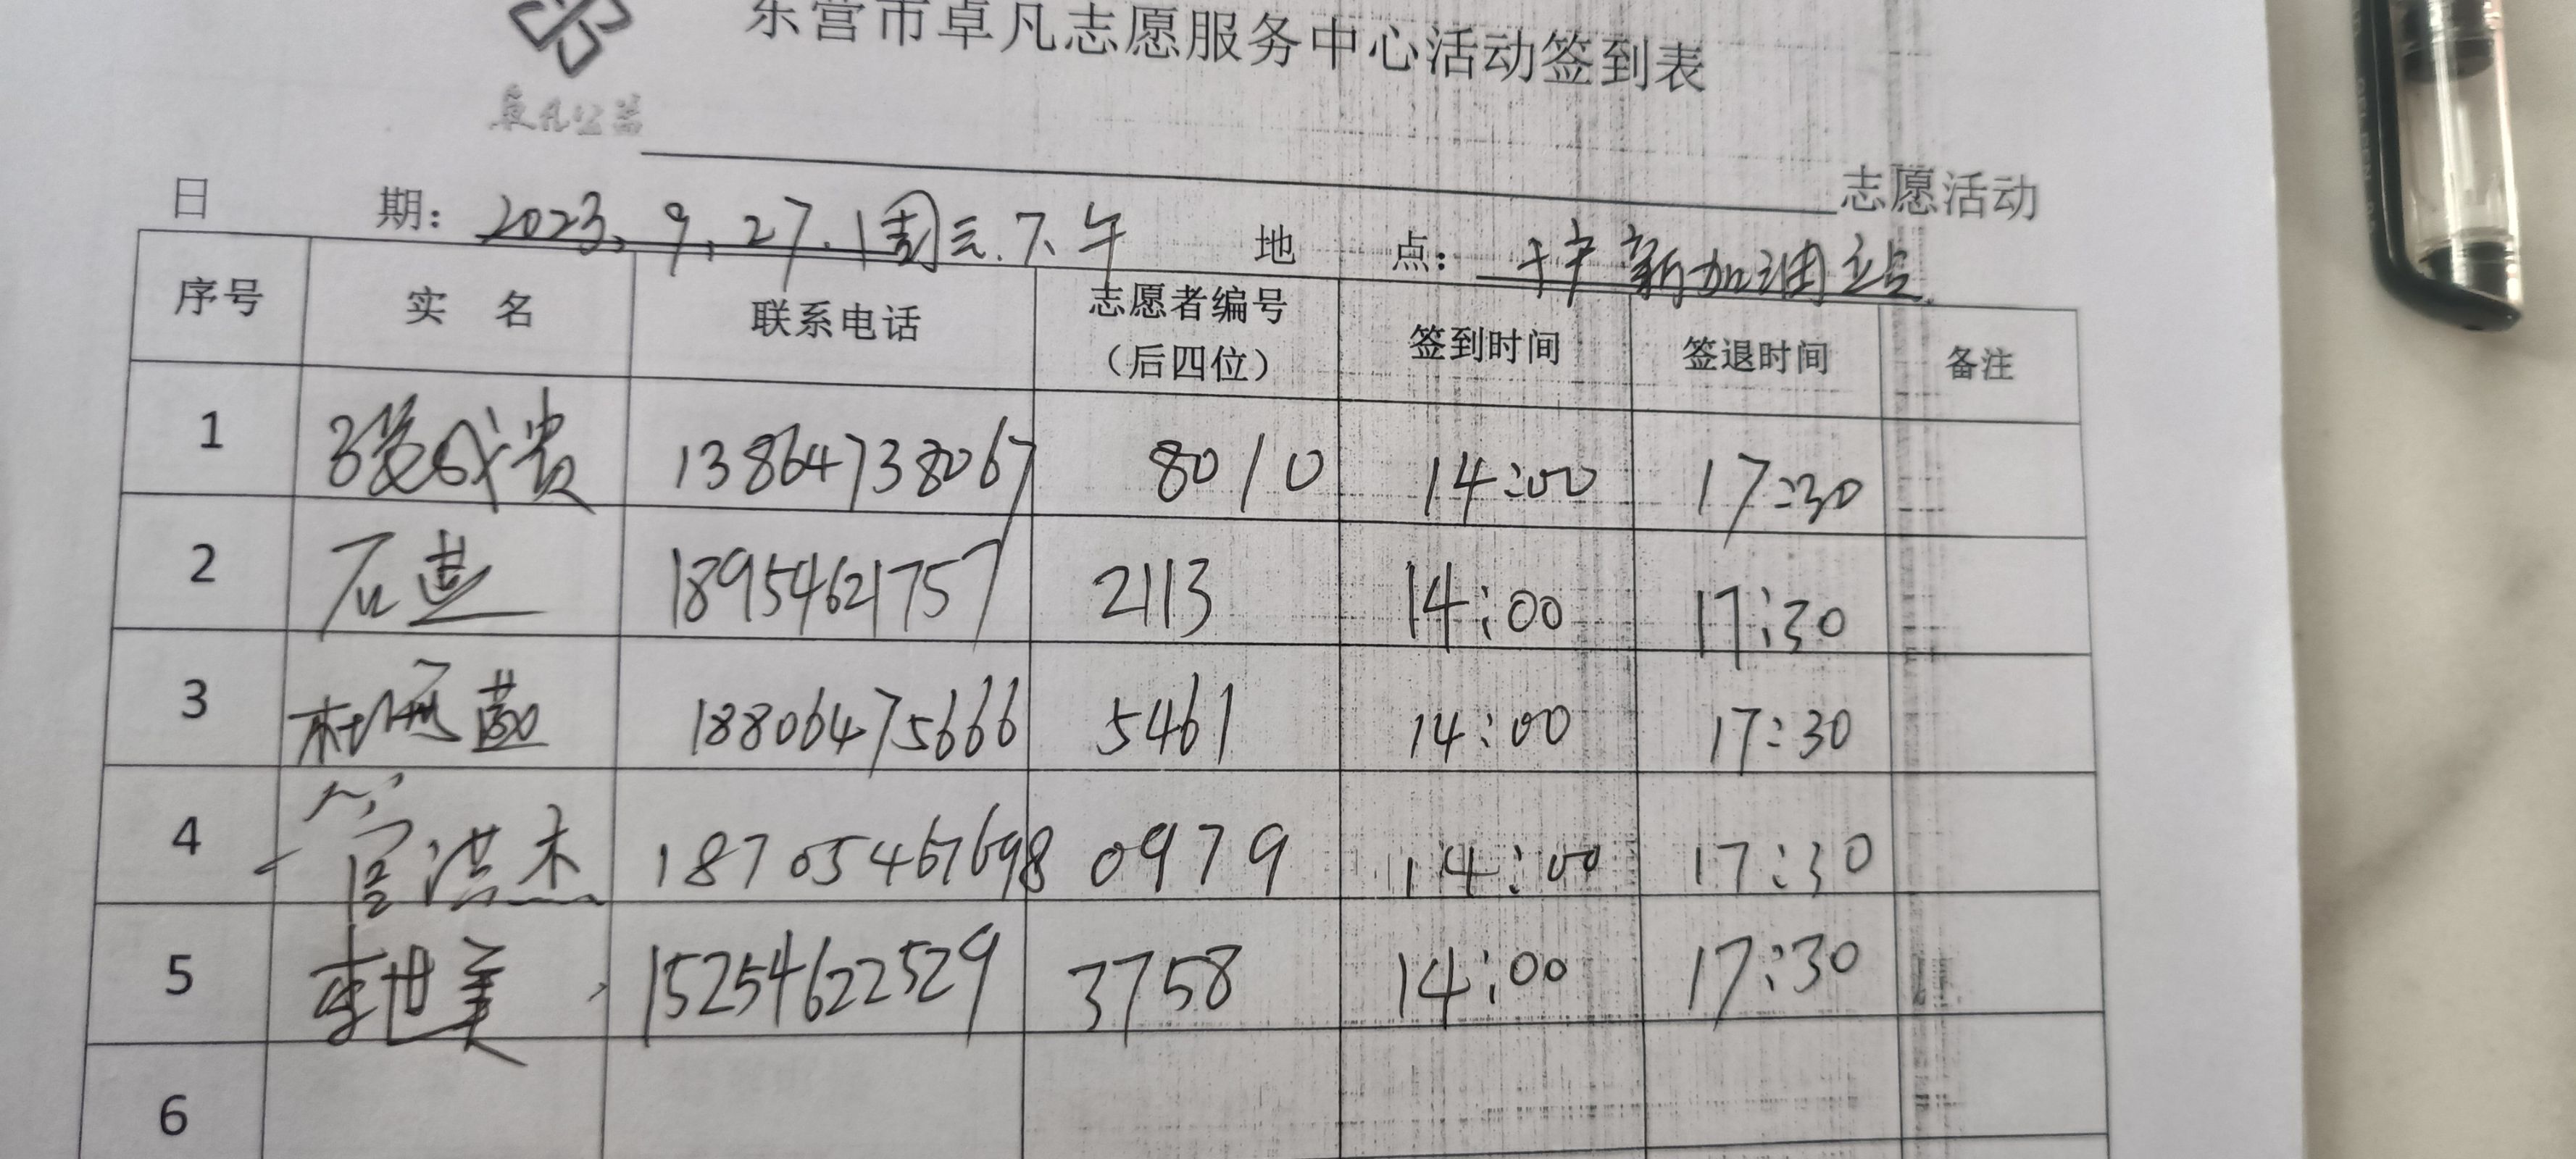 东营市卓凡志愿服务中心活动签到表
卓凡公益
志愿活动
日 期：2023.9.27.(周三.下午 地 点：新加油站
序号 实 名 联系电话 志愿者编号（后四位） 签到时间 签退时间 备注
1 张成贵 13864738067 8010 14:00 17:30
2 石燕 18954621757 2113 14:00 17:30
3 18806475666 5461 14:00 17:30
4 管洪杰 18705467698 0979 14:00 17:30
5 李世美 15254622529 3758 14:00 17:30
6